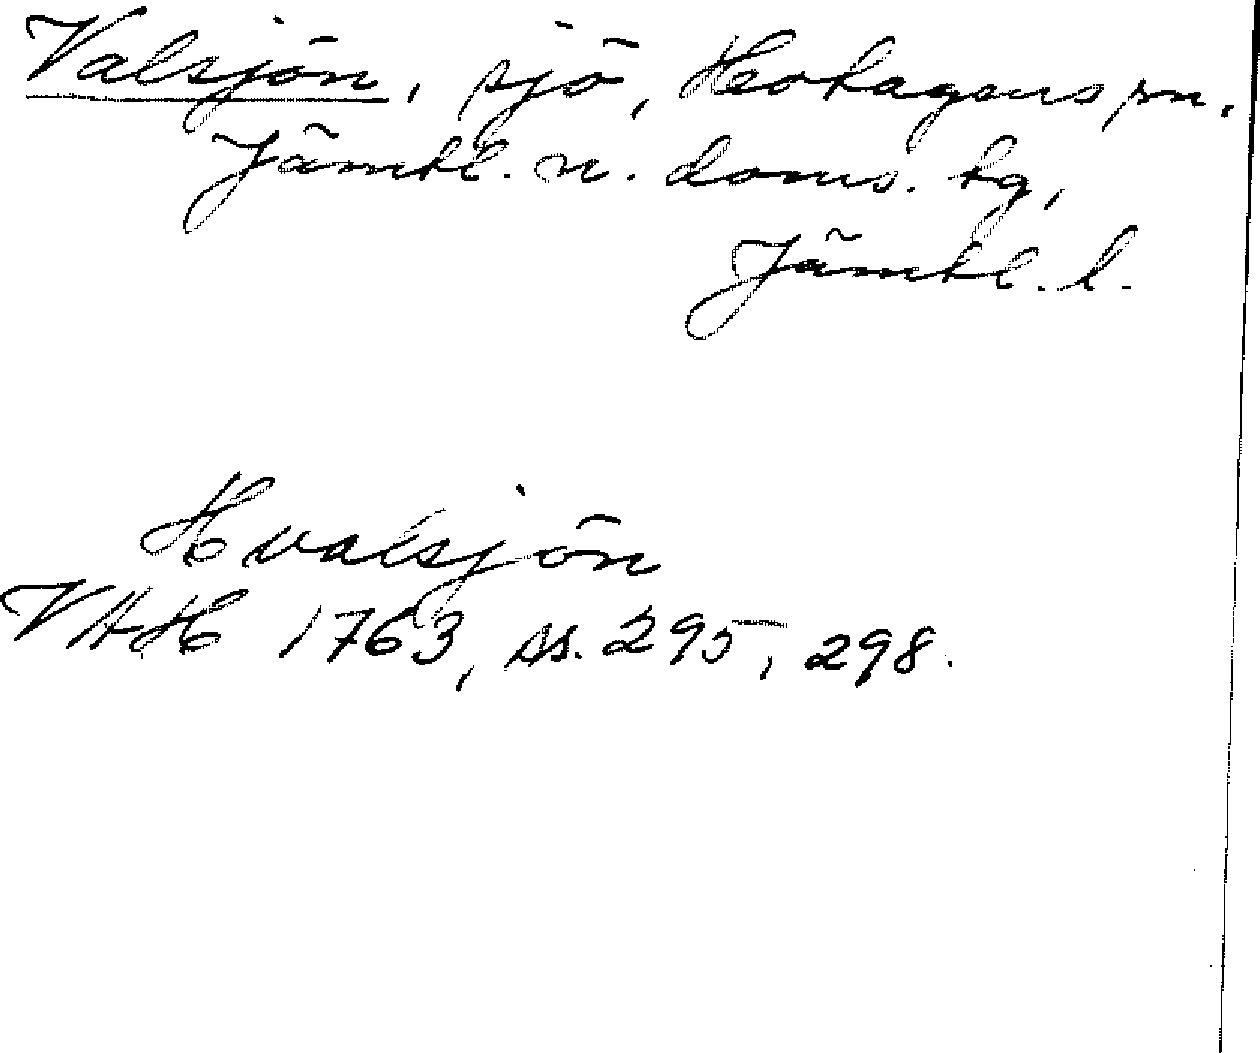 Valsjön, sjö, Hotagens sn,
Jämtl. n. doms. tg,
Jämtl. l.
Hvalsjön
VAH 1763, ss. 295, 298.